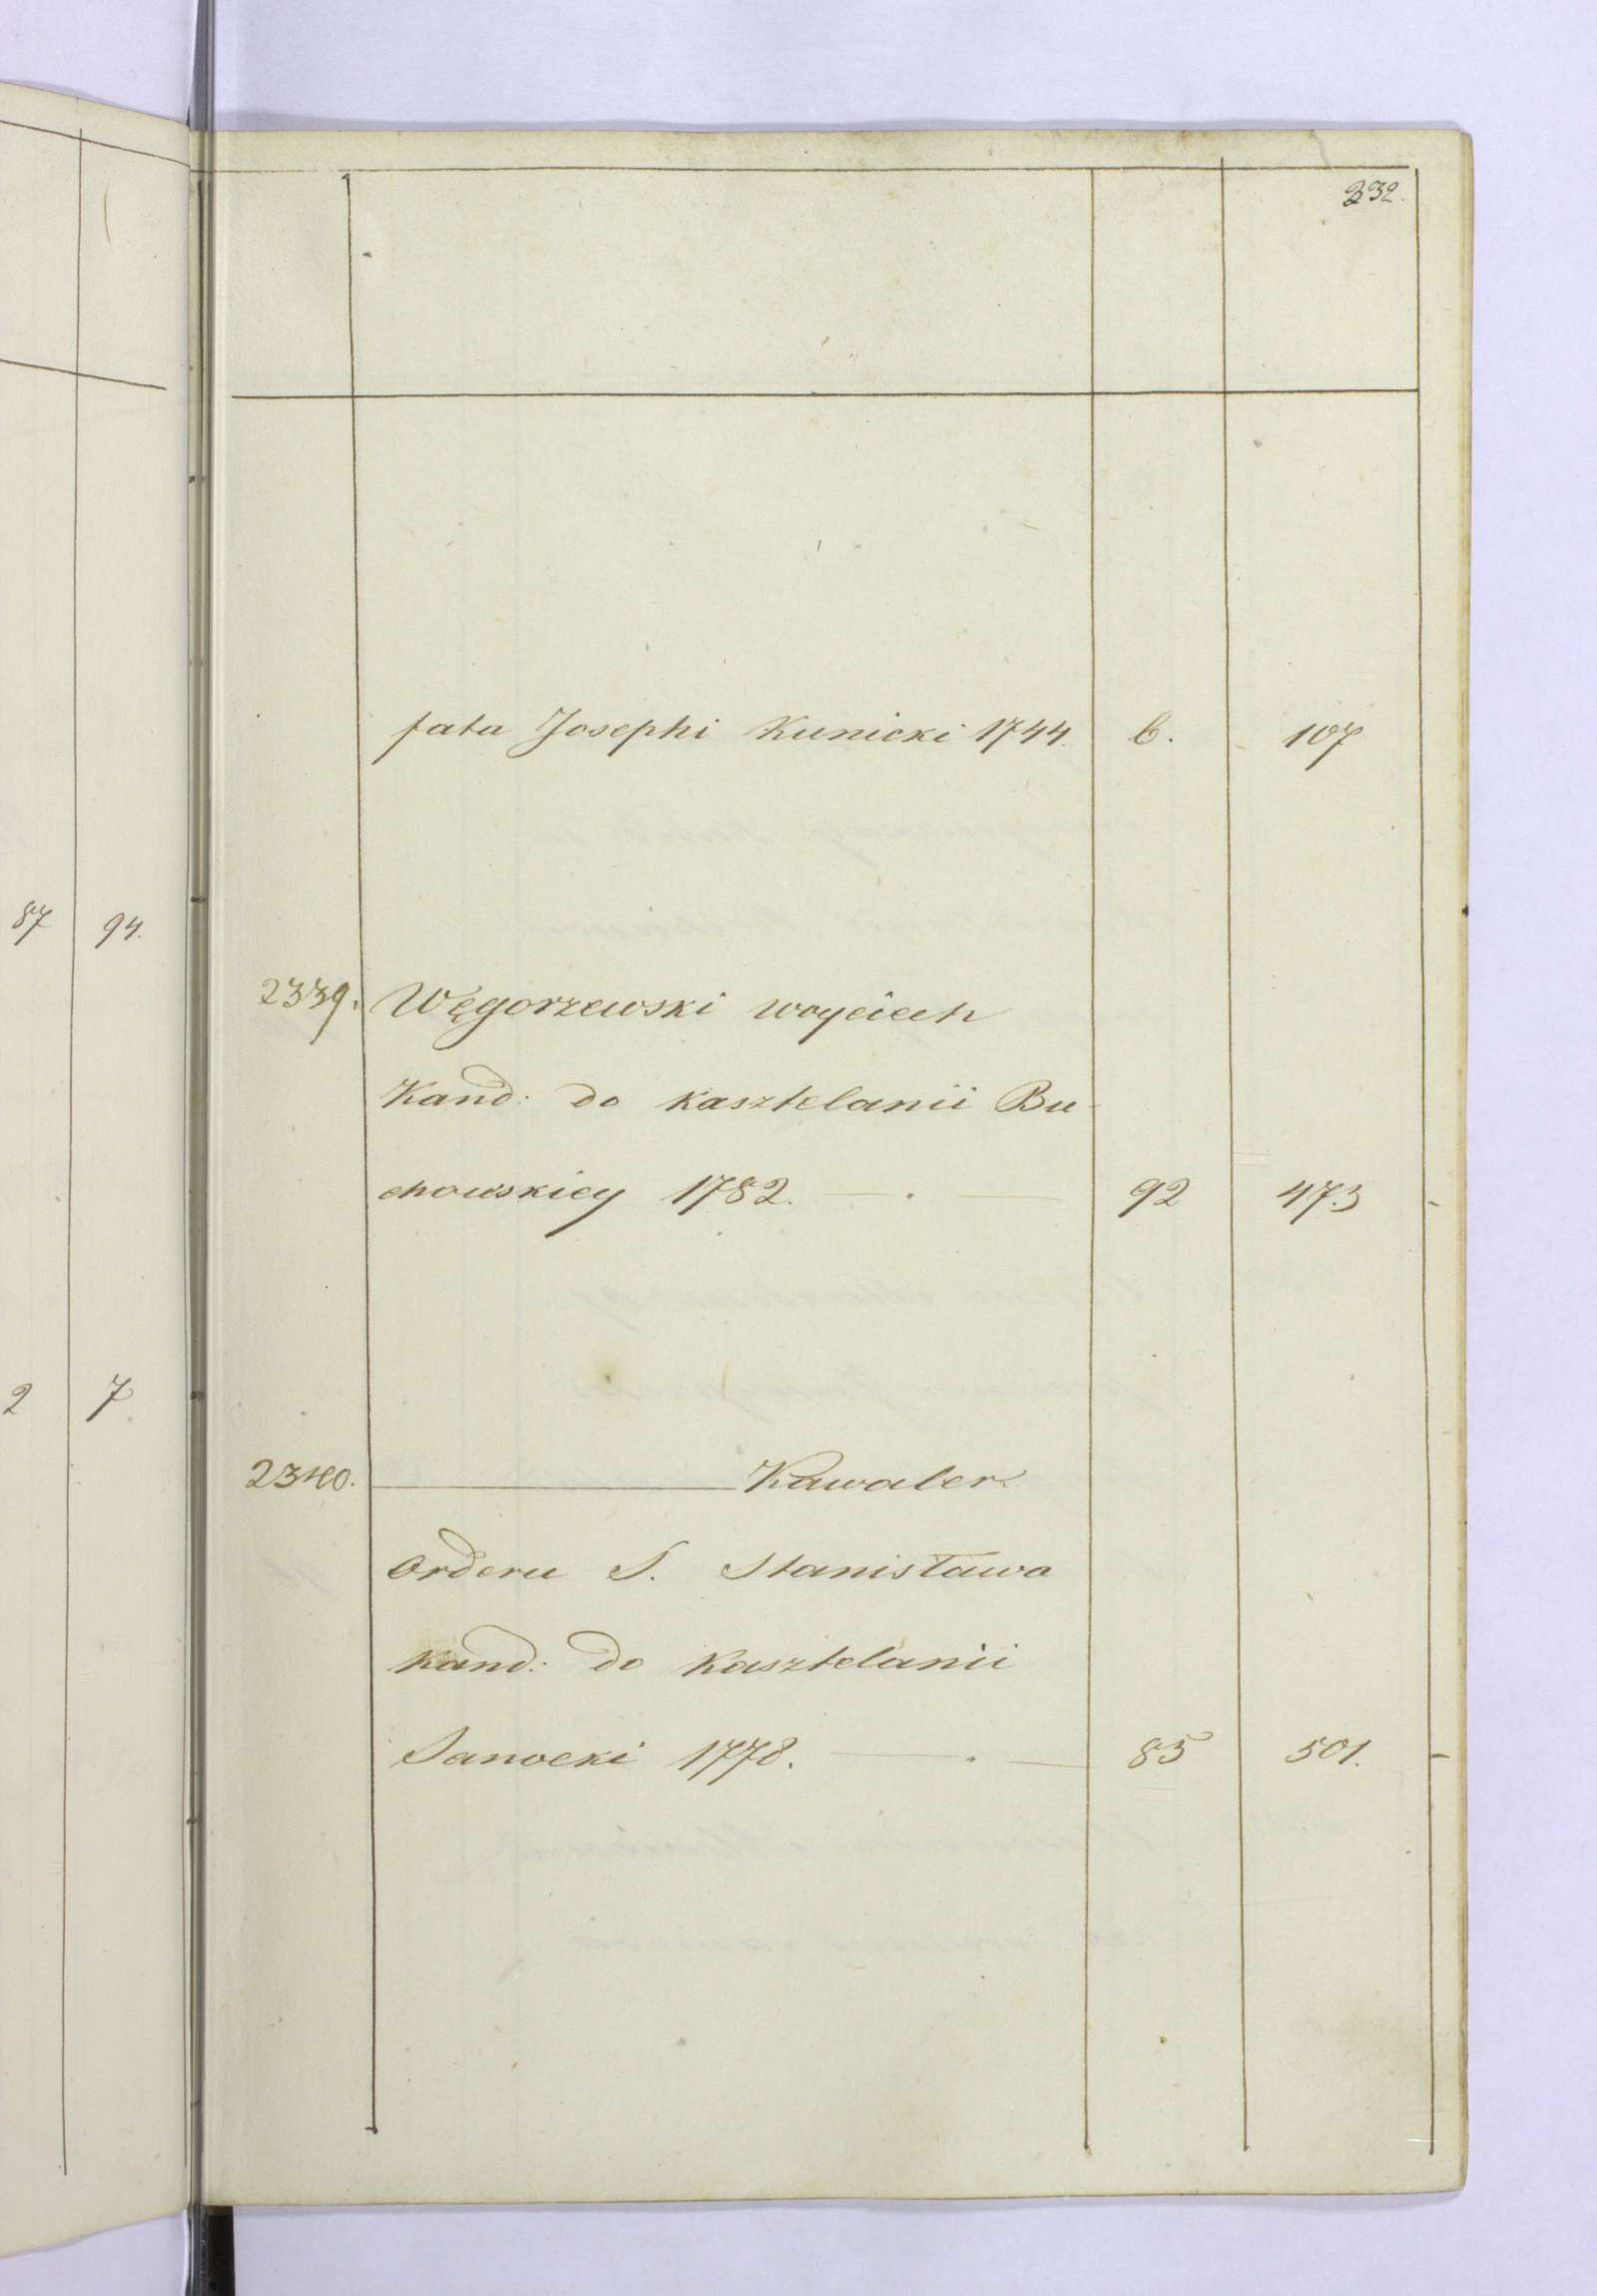 332.
fata Josephi Kunicki 1744. 6. 107
87 94.
2339. Węgorzewski Woyciech
Kand: do kasztelanii Bu-
chowskiey 1782. — . — 92 473 -
2 7
2340. ——— Kawaler
Orderu S. Stanisława
Kand: do Kasztelanii
Sanocki 1778. — . — 85 501. -